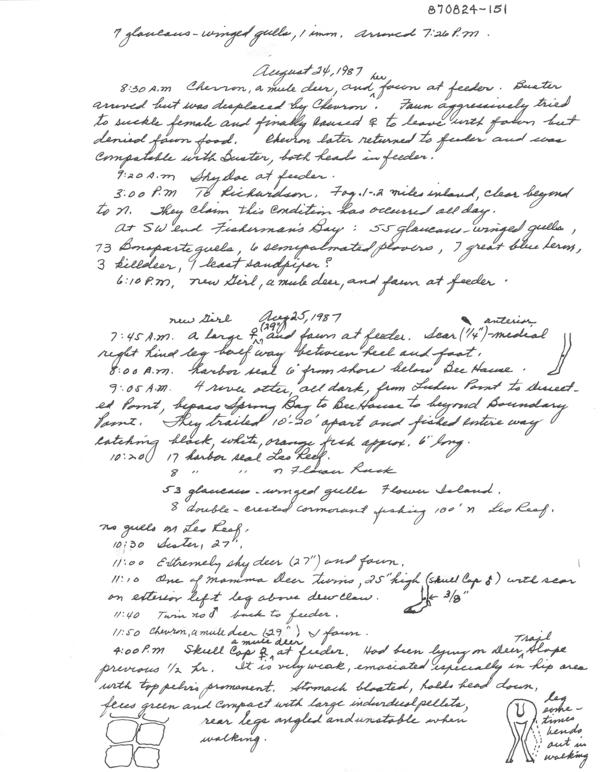 870824-151
7 glaucous-winged gulls, 1 imm. arrived 7:26 P.M.
August 24, 1987
8:30 A.M Chevron, a mule deer, and her fawn at feeder. Buster
arrived but was displaced by Chevron. Faun aggressively tried
to suckle female and finally caused ♀ to leave with fawn but
denied fawn food. Chevron later returned to feeder and was
compatable with Buster, both heads in feeder.
9:20 A.M Shy Doe at feeder.
3:00 P.M To Richardson. Fog. 1-2 miles inland, clear beyond
to N. They claim, this condition has occurred all day.
At SW end Fisherman's Bay: 55 glaucous-winged gulls,
73 Bonaparte gulls, 6 semipalmated plovers, 7 great blue heron,
3 killdeer, 1 least sandpiper?
6:10 P.M. new Girl, a mule deer, and fawn at feeder.
new Girl Aug 25, 1987
7:45 A.M. A large ♀ (29") and fawn at feeder. Scar (1/4")-anterior medial
right hind leg half way between heel and foot.
8:00 A.M. harbor seal 6' from shore below Bee House.
9:05 A.M. 4 river otter, all dark, from Indian Point to
ed Point, bypass Spring Bay to Bee House to beyond Boundary
Point. They trailed 10'-20' apart and fished entire way
catching black, white, orange fish approx. 6" long.
10:20 17 harbor seal Leo Reef.
8 " " N Flower Rock
53 glaucous-winged gulls Flower Island.
8 double-crested cormorant fishing 100' N Leo Reef.
no gulls on Leo Reef.
10:30 Sister, 27".
11:00 Extremely shy deer (27") and fawn.
11:10 One of Mamma Deer twins, 25" high (Skull Cap ♂) with scar
on exterior left leg above dewclaw. ← 3/8"
11:40 Twin no ♂ back to feeder.
11:50 Chevron, a mule deer (29") & fawn.
4:00 P.M Skull Cap ♀, a mule deer at feeder. Had been lying on Deer Trail Slope
previous 1/2 hr. It is very weak, emaciated especially in hip area
with top pelvis promanent. Stomach bloated, holds head down,
feces green and compact with large individual pellets,
rear legs angled and unstable when
walking.
leg
some-
times
bends
out in
walking